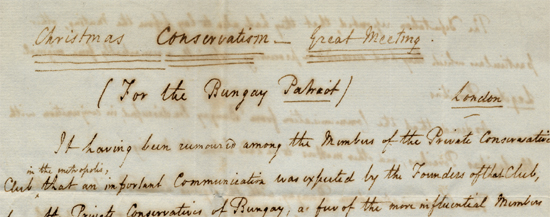 Christmas Conservatism — Great Meeting.
(For the Bungay Patriot)
London
It having been rumoured among the Members of the Private Conservative
in the metropolis,
Club, that an important Communication was expected by the Founders of that Club,
the Private Conservatives of Bungay, a few of the more influential Members